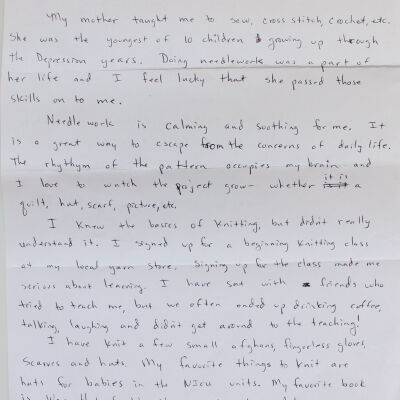 My mother taught me to sew, cross stitch, crochet, etc.
She was the youngest of 10 children growing up through
the Depression years. Doing needlework was a part of
her life and I feel lucky that she passed those
skills on to me.
Needle work is calming and soothing for me. It
is a great way to escape from the concerns of daily life.
The rhythm of the pattern occupies my brain and
I love to watch the project grow- whether it is a
quilt, hat, scarf, picture, etc.
I knew the basics of knitting, but didn't really
understand it. I signed up for a beginning knitting class
at my local yarn store. Signing up for the class made me
serious about learning. I have sat with friends who
tried to teach me, but we often ended up drinking coffee,
talking, laughing and didn't get around to the teaching!
I have knit a few small afghans, fingerless gloves,
scarves and hats. My favorite things to knit are
hats for babies in the NICU units. My favorite book
is